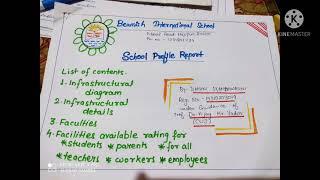 Beamish International School
School Profile Report
List of contents.
1. Infrastructural
diagram
2. Infrastructural
details
3. Faculties
4. Facilities available rating for
*students *parents *for all
*teachers *workers *employees
By-
Reg. No-
under Guidance of
Prof.
KINEMASTER